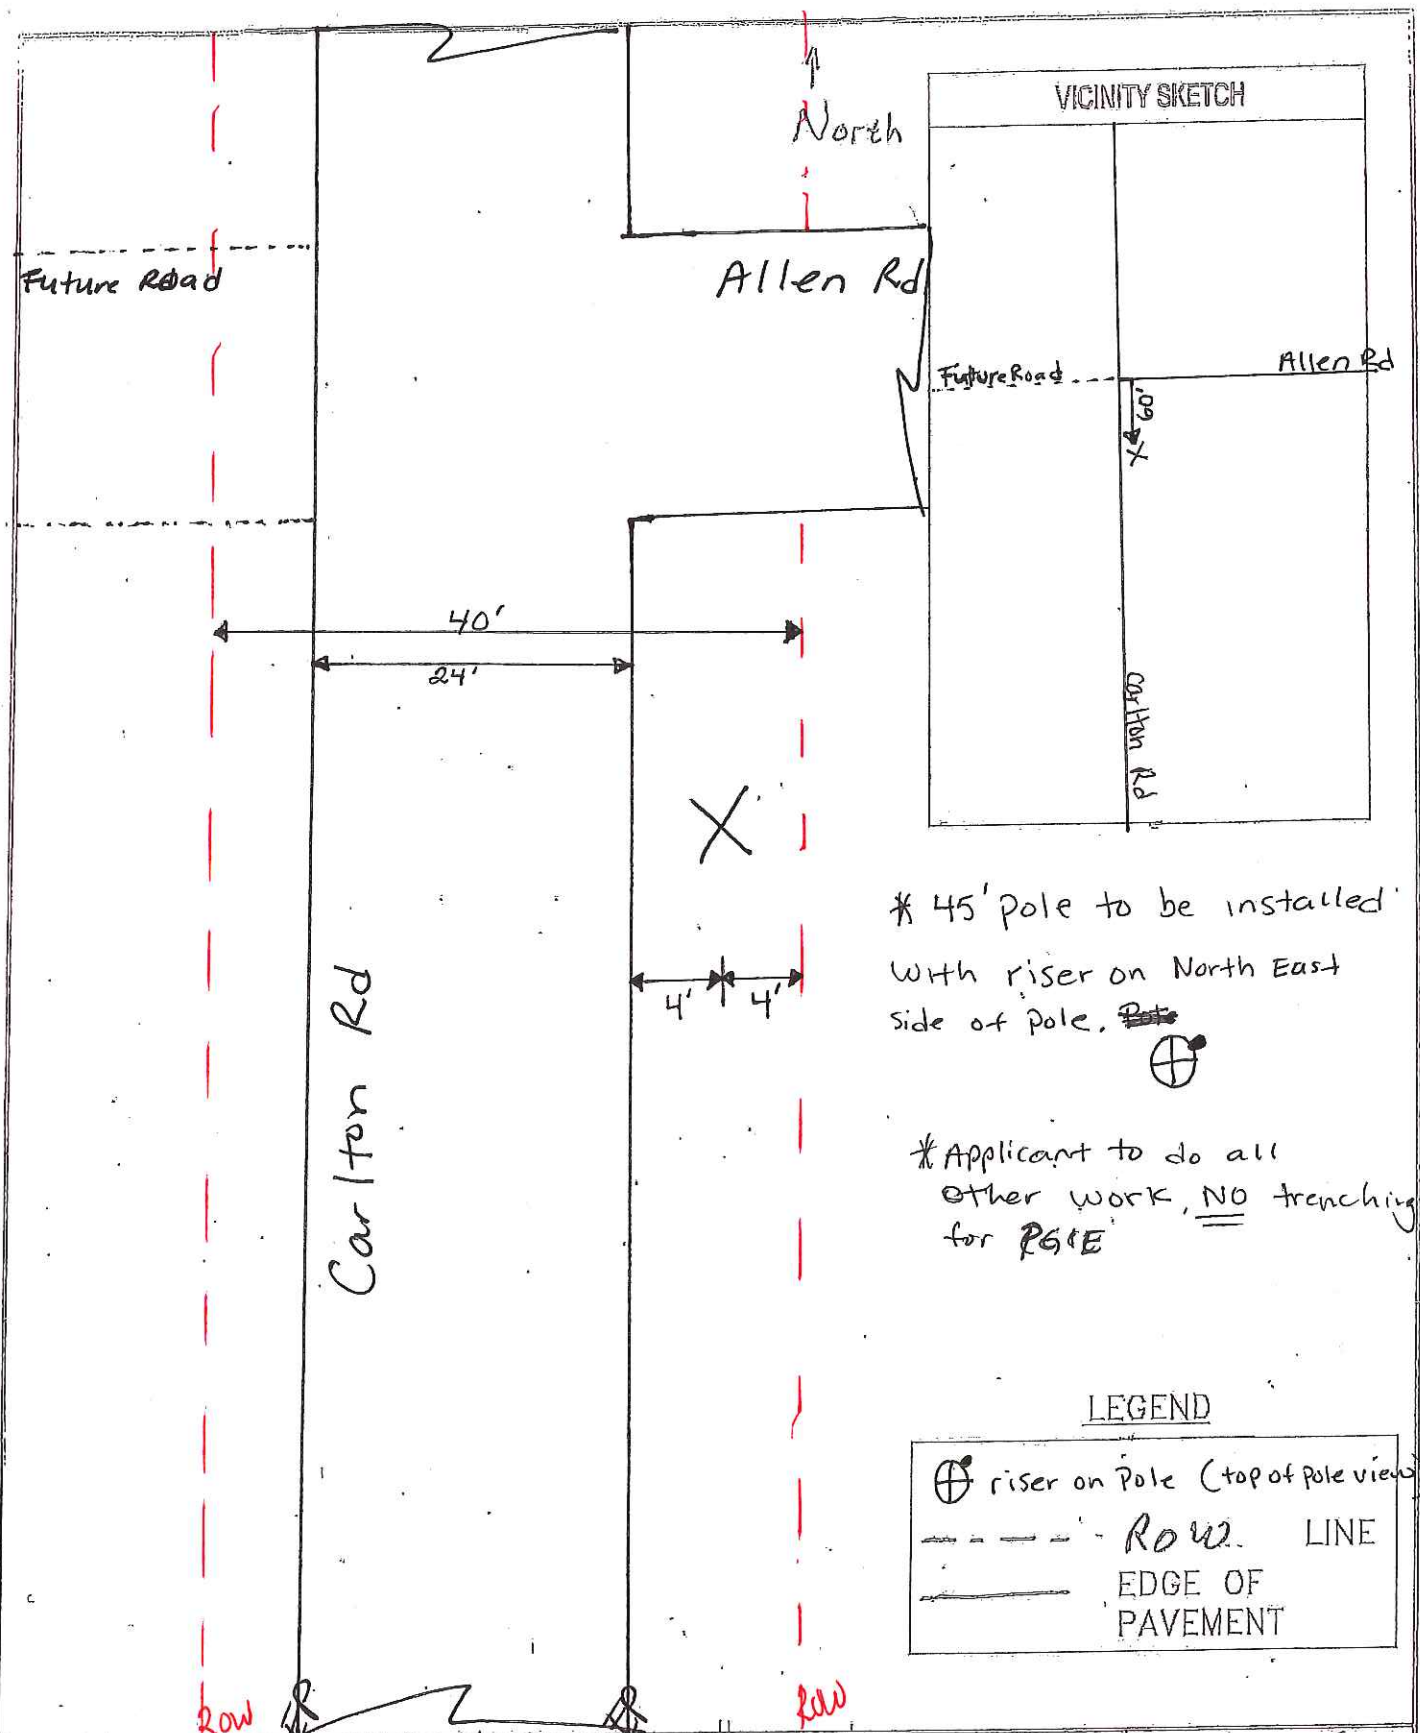 North
VICINITY SKETCH
Future Road
Allen Rd
Future Road
Allen Rd
60'
X
Carlton Rd
40'
24'
X
4'
4'
Carlton Rd
* 45' pole to be installed
with riser on North East
side of pole.
* Applicant to do all
other work, NO trenching
for PG&E
LEGEND
riser on Pole (top of pole view)
ROW LINE
EDGE OF
PAVEMENT
ROW
ROW